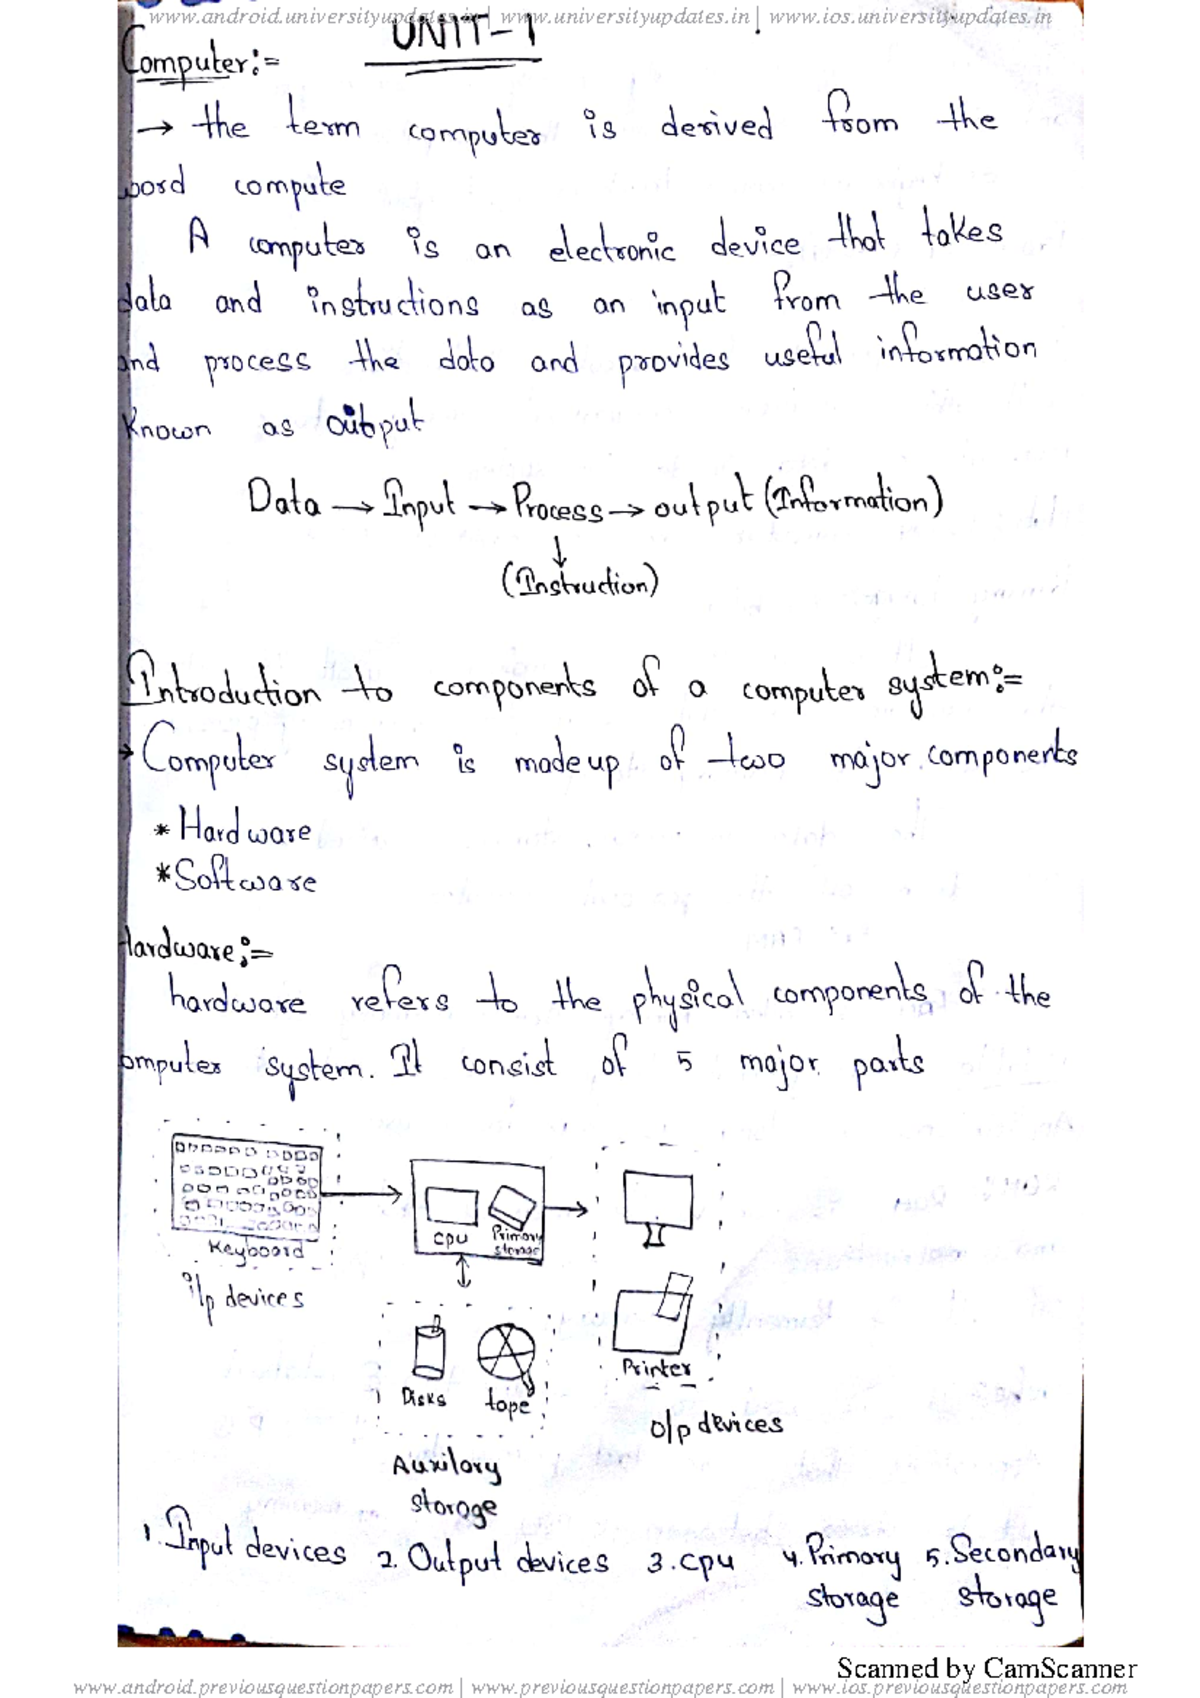 www.android.universityupdates.in | www.universityupdates.in | www.ios.universityupdates.in
UNIT-1
Computer:=
→ the term computer is derived from the
word compute
A computer is an electronic device that takes
data and instructions as an input from the user
and process the data and provides useful information
known as output
Data → Input → Process → output (Information)
↓
(Instruction)
Introduction to components of a computer system:=
→ Computer system is made up of two major components
* Hardware
* Software
Hardware:=
hardware refers to the physical components of the
omputer system. It consist of 5 major parts
Keyboard
i/p devices
cpu
Primary
storage
Disks
tape
Auxilary
storage
Printer
o/p devices
1. Input devices 2. Output devices 3. cpu 4. Primary 5. Secondary
storage storage
Scanned by CamScanner
www.android.previousquestionpapers.com | www.previousquestionpapers.com | www.ios.previousquestionpapers.com